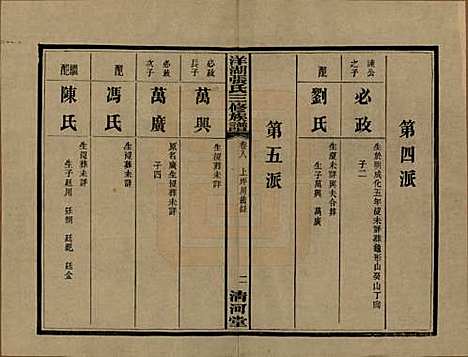 第四派
諫公之子
必政
生於明成化五年歿未詳葬龜形山癸山丁向
子二
配
劉氏
生歿未詳與夫合葬
生子萬興 萬廣
第五派
洋湖張氏三修族譜
卷八
上坪房齒錄
二
清河堂
必政長子
萬興
生歿葬未詳
必政次子
萬廣
原名廣生歿葬未詳
子四
配
馮氏
生歿葬未詳
繼配
陳氏
生歿葬未詳
生子廷用 廷朝 廷範 廷金